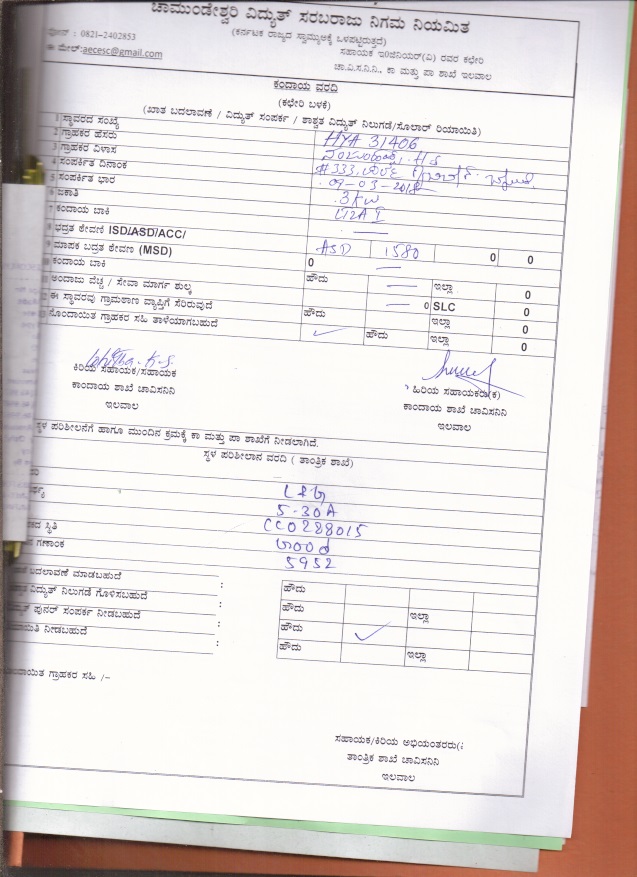 ಚಾಮುಂಡೇಶ್ವರಿ ವಿದ್ಯುತ್ ಸರಬರಾಜು ನಿಗಮ ನಿಯಮಿತ
(ಕರ್ನಾಟಕ ರಾಜ್ಯದ ಸ್ವಾಮ್ಯಕ್ಕೆ ಒಳಪಟ್ಟಿರುತ್ತದೆ)
ಫೋನ್ : 0821-2402853
ಸಹಾಯಕ ಇಂಜಿನಿಯರ್(ವಿ) ರವರ ಕಛೇರಿ
ಈ ಮೇಲ್:aecesc@gmail.com
ಚಾ.ವಿ.ಸ.ನಿ.ನಿ., ಕಾ ಮತ್ತು ಪಾ ಶಾಖೆ ಇಲವಾಲ
ಕಂದಾಯ ವರದಿ
(ಕಛೇರಿ ಬಳಕೆ)
(ಖಾತ ಬದಲಾವಣೆ / ವಿದ್ಯುತ್ ಸಂಪರ್ಕ / ಶಾಶ್ವತ ವಿದ್ಯುತ್ ನಿಲುಗಡೆ/ಸೋಲಾರ್ ರಿಯಾಯಿತಿ)
1 ಸ್ಥಾವರದ ಸಂಖ್ಯೆ HYA 31406
2 ಗ್ರಾಹಕರ ಹೆಸರು
3 ಗ್ರಾಹಕರ ವಿಳಾಸ #333
4 ಸಂಪರ್ಕಿತ ದಿನಾಂಕ 09-03-2018
5 ಸಂಪರ್ಕಿತ ಭಾರ 3KW
6 ಜಕಾತಿ
7 ಕಂದಾಯ ಬಾಕಿ —
8 ಭದ್ರತ ಠೇವಣಿ ISD/ASD/ACC/ ASD 1580 0 0
9 ಮಾಪಕ ಬದ್ರತ ಠೇವಣಿ (MSD) 0 —
ಕಂದಾಯ ಬಾಕಿ ಹೌದು — ಇಲ್ಲಾ 0
ಅಂದಾಜು ವೆಚ್ಚ / ಸೇವಾ ಮಾರ್ಗ ಶುಲ್ಕ — 0 SLC 0
ಈ ಸ್ಥಾವರವು ಗ್ರಾಮಠಾಣ ವ್ಯಾಪ್ತಿಗೆ ಸೇರಿರುವುದೆ ಹೌದು ಇಲ್ಲಾ 0
ನೊಂದಾಯಿತ ಗ್ರಾಹಕರ ಸಹಿ ತಾಳೆಯಾಗಬಹುದೆ ✓ ಹೌದು ಇಲ್ಲಾ 0
ಕಿರಿಯ ಸಹಾಯಕ/ಸಹಾಯಕ
ಕಾಂದಾಯ ಶಾಖೆ ಚಾವಿಸನಿನಿ
ಇಲವಾಲ
ಹಿರಿಯ ಸಹಾಯಕರು(ಕ)
ಕಾಂದಾಯ ಶಾಖೆ ಚಾವಿಸನಿನಿ
ಇಲವಾಲ
ಸ್ಥಳ ಪರಿಶೀಲನೆಗೆ ಹಾಗೂ ಮುಂದಿನ ಕ್ರಮಕ್ಕೆ ಕಾ ಮತ್ತು ಪಾ ಶಾಖೆಗೆ ನೀಡಲಾಗಿದೆ.
ಸ್ಥಳ ಪರಿಶೀಲಾನ ವರದಿ ( ತಾಂತ್ರಿಕ ಶಾಖೆ)
L&G
5-30A
CC0288015
ಸ್ಥಿತಿ
ಗಣಾಂಕ 5952
ಬದಲಾವಣೆ ಮಾಡಬಹುದೆ : ಹೌದು
ವಿದ್ಯುತ್ ನಿಲುಗಡೆ ಗೊಳಿಸಬಹುದೆ : ಹೌದು ಇಲ್ಲಾ
ಪುನರ್ ಸಂಪರ್ಕ ನೀಡಬಹುದೆ : ಹೌದು ✓
ನೀಡಬಹುದೆ : ಹೌದು ಇಲ್ಲಾ
ಗ್ರಾಹಕರ ಸಹಿ /-
ಸಹಾಯಕ/ಕಿರಿಯ ಅಭಿಯಂತರರು(
ತಾಂತ್ರಿಕ ಶಾಖೆ ಚಾವಿಸನಿನಿ
ಇಲವಾಲ